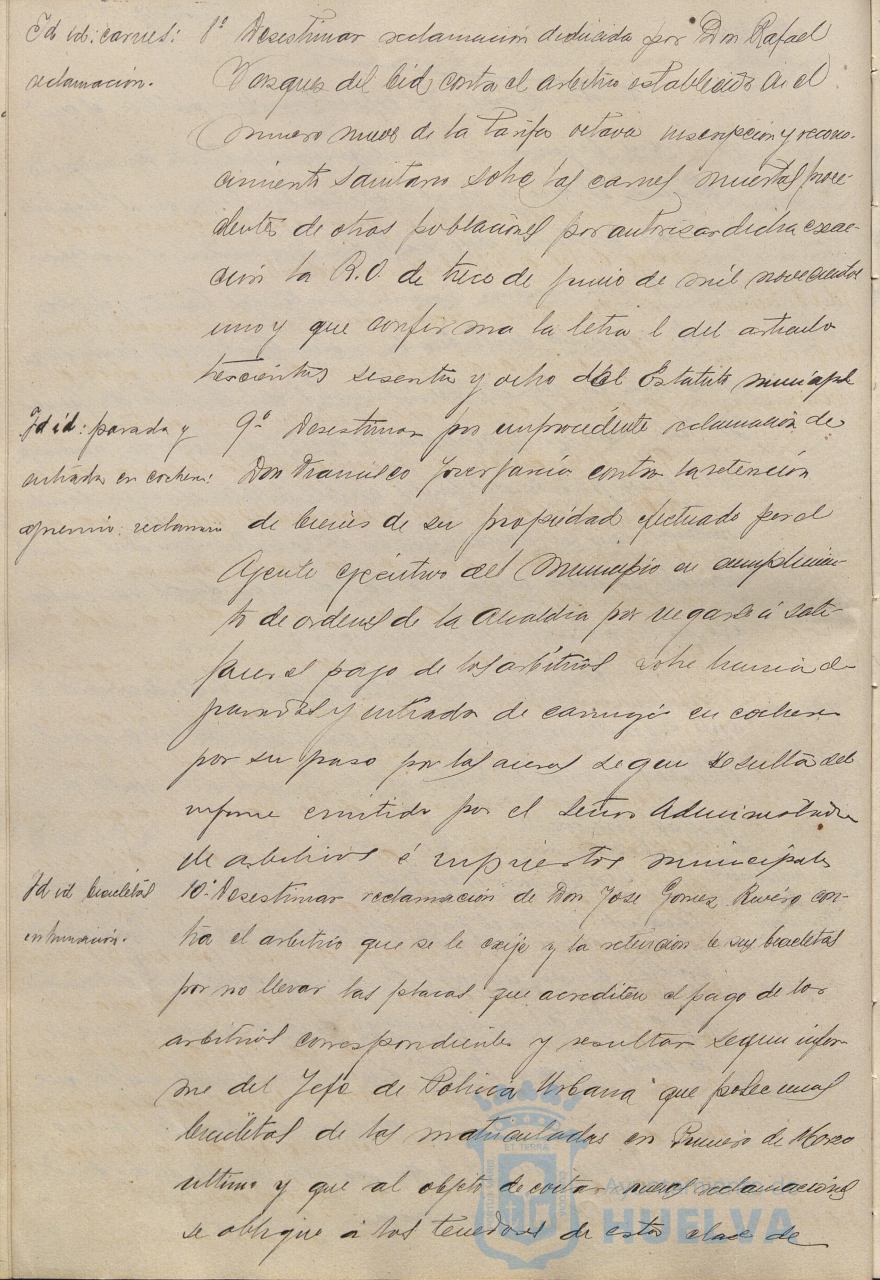 Id id: carnes:
reclamación.
8º Desestimar reclamación deducida por Don Rafael
Vazquez del Cid contra el arbitrio establecido en el
numero nueve de la tarifa octava inscripción y recono-
cimiento sanitario sobre las carnes muertas proce-
dentes de otras poblaciones por autorizar dicha exac-
cion la R.O. de trece de Junio de mil novecientos
uno y que confirma la letra l del articulo
trescientos sesenta y ocho del Estatuto municipal
Id id: parada y
entrada en cochera:
apremio: reclamación
9º Desestimar por improcedente reclamación de
Don Francisco contra la retención
de bienes de su propiedad efectuado por el
Agente ejecutivo del Municipio en cumplimien-
to de ordenes de la Alcaldia por negarse á satis-
facer el pago de los arbitrios sobre licencia de
paradas y entrada de carruages en cochera
por su paso por las aceras segun resulta del
informe emitido por el Señor Administrador
de arbitrios é impuestos municipales
Id id bicicletas
10º Desestimar reclamación de Don Jose Gomez Rivero con-
tra el arbitrio que se le exije y la retencion de sus bicicletas
por no llevar las placas que acrediten el pago de los
arbitrios correspondientes y resultar segun infor-
me del Jefe de Policia Urbana que posee unas
bicicletas de las matriculadas en Primero de Marzo
ultimo y que al objeto de evitar nuevas reclamaciones
se oblique á los tenedores de esta clase de
Ayuntamiento de
HUELVA